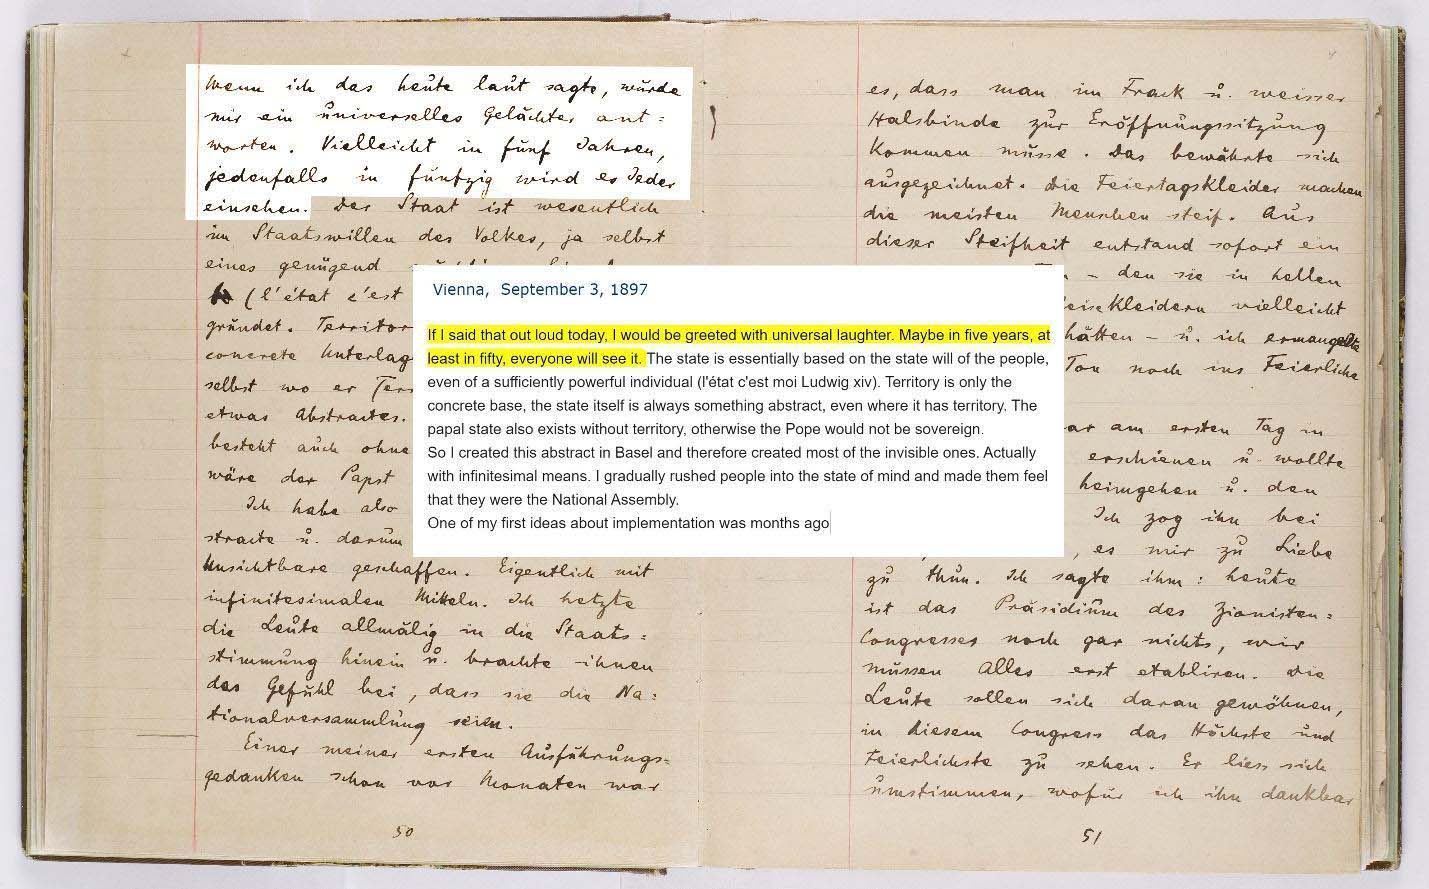 Wenn ich das heute laut sagte, würde
mir ein universelles Gelächter ant=
worten. Vielleicht in fünf Jahren,
jedenfalls in fünfzig wird es Jeder
einsehen. Der Staat ist wesentlich
im Staatswillen des Volkes, ja selbst
eines genügend
(l'état c'est
gründet. Territor
concrete Unterlag
selbst wo er Terr
etwas Abstractes.
besteht auch ohne
wäre der Papst
Ich habe also
stracte u. darum
Unsichtbare geschaffen. Eigentlich mit
infinitesimalen Mitteln. Ich hetzte
die Leute allmälig in die Staats=
stimmung hinein u. brachte ihnen
das Gefühl bei, dass sie die Na=
tionalversammlung seien.
Einer meiner ersten Ausführungs=
gedanken schon vor Monaten war
50
Vienna, September 3, 1897
If I said that out loud today, I would be greeted with universal laughter. Maybe in five years, at
least in fifty, everyone will see it. The state is essentially based on the state will of the people,
even of a sufficiently powerful individual (l'état c'est moi Ludwig xiv). Territory is only the
concrete base, the state itself is always something abstract, even where it has territory. The
papal state also exists without territory, otherwise the Pope would not be sovereign.
So I created this abstract in Basel and therefore created most of the invisible ones. Actually
with infinitesimal means. I gradually rushed people into the state of mind and made them feel
that they were the National Assembly.
One of my first ideas about implementation was months ago
es, dass man im Frack u. weisser
Halsbinde zur Eröffnungssitzung
kommen müsse. Das bewährte sich
ausgezeichnet. Die Feiertagskleider machen
die meisten Menschen steif. Aus
dieser Steifheit entstand sofort ein
– den sie in hellen
eisekleidern vielleicht
hätten – u. ich ermangelte
Ton noch ins Feierliche
ar am ersten Tag in
erschienen u. wollte
heimgehen u. den
Ich zog ihn bei
, es mir zu Liebe
zu thun. Ich sagte ihm: heute
ist das Präsidium des Zionisten=
Congresses noch gar nichts, wir
müssen Alles erst etabliren. Die
Leute sollen sich daran gewöhnen,
in diesem Congress das Höchste und
Feierlichste zu sehen. Er liess sich
umstimmen, wofür ich ihm dankbar
51